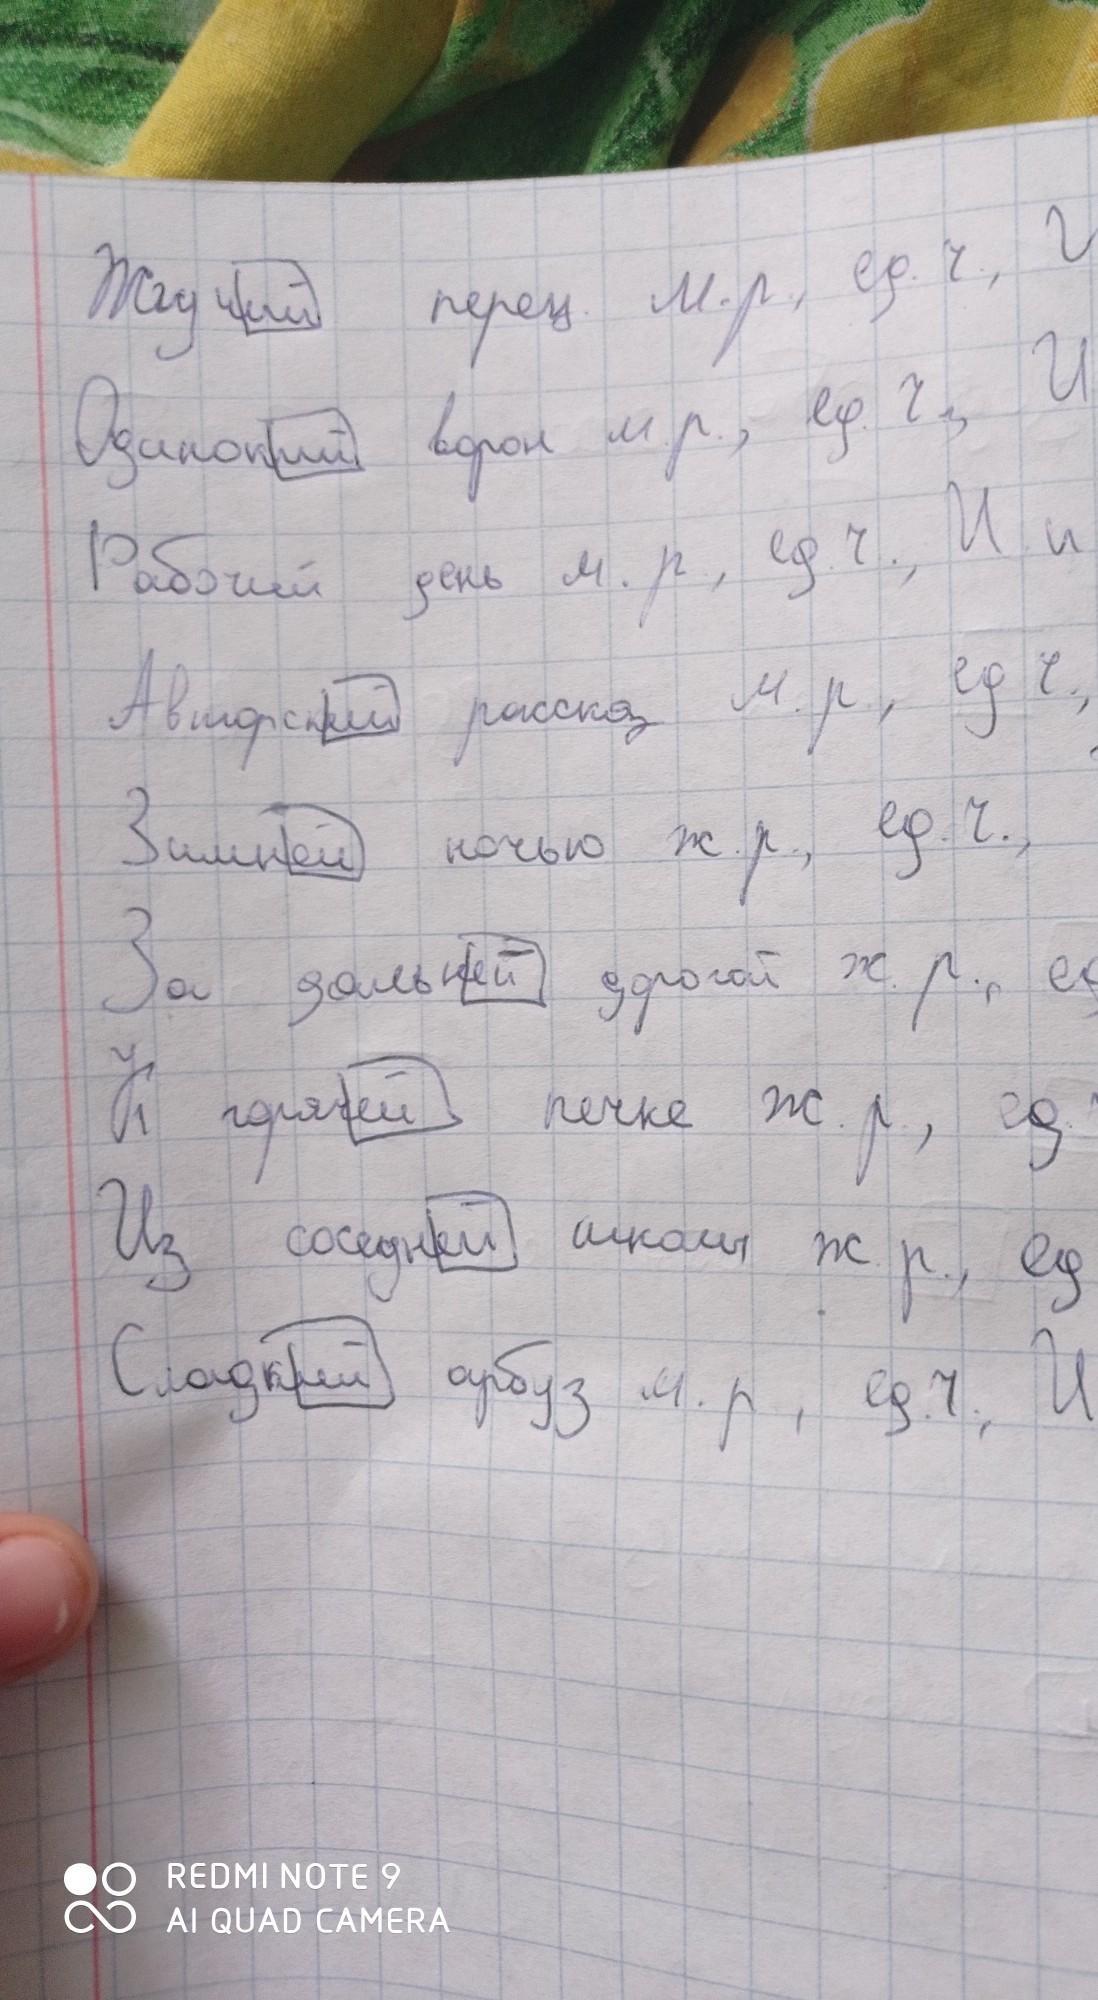 Жгучий перец м.р., ед.ч., И
Одинокий ворон м.р., ед.ч., И
Рабочий день м.р., ед.ч., И п
Авторский рассказ м.р., ед ч.,
Зимней ночью ж.р., ед.ч.,
За дальней дорогой ж.р., ед
К горячей печке ж.р., ед.ч
Из соседней школы ж р., ед
Сладкий арбуз м.р., ед.ч., И
REDMI NOTE 9
AI QUAD CAMERA